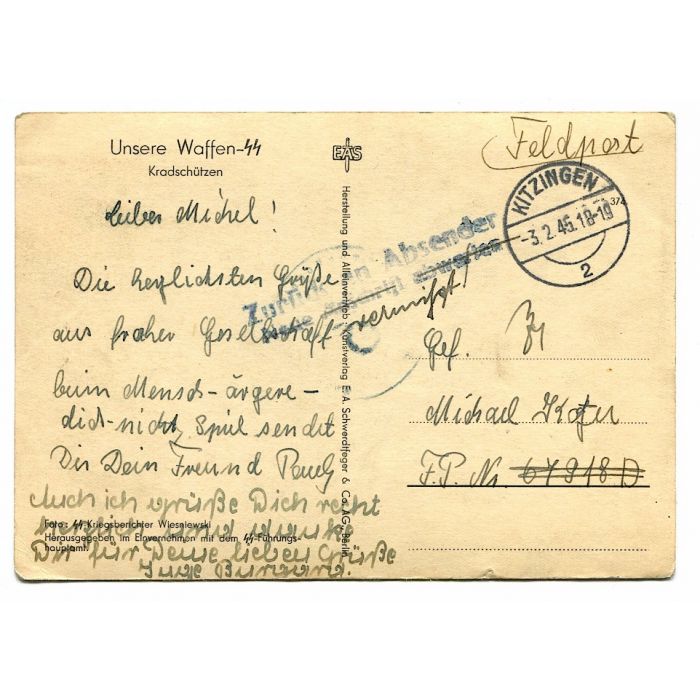 Unsere Waffen-SS
Kradschützen
Lieber Michel!
Die herzlichsten Grüße
aus froher Gesellschaft
beim Mensch-ärgere-
dich-nicht Spiel sendet
Dir Dein Freund
Auch ich grüße Dich recht
herzlich und danke
Dir für Deine lieben Grüße
Foto: SS-Kriegsberichter Wiesniewski
Herausgegeben im Einvernehmen mit dem SS-Führungs-
hauptamt.
EAS
Herstellung und Alleinvertrieb Kunstverlag E. A. Schwerdtfeger & Co. AG. Berlin
Zurück an Absender
Neue Anschrift abwarten
vermißt!
Feldpost
KITZINGEN
-3.2.45.18-19
2
Gef.
Michael
F.P. Nr. 67918 D